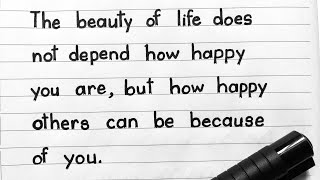 The beauty of life does
not depend how happy
you are, but how happy
others can be because
of you.